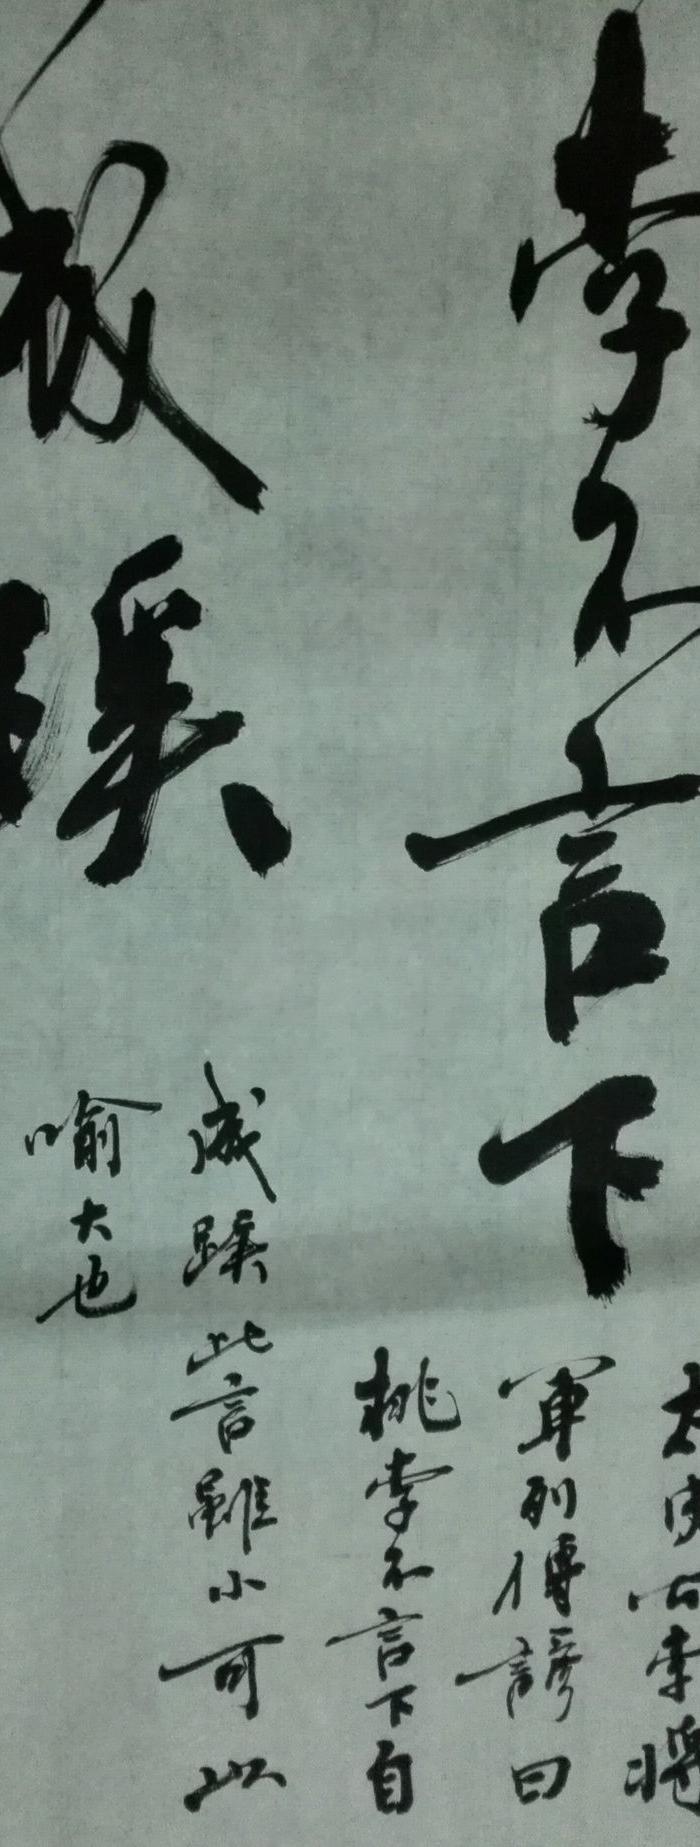 李不言下
成蹊
太史公李將
軍列傳諺曰
桃李不言下自
成蹊此言雖小可以
喻大也